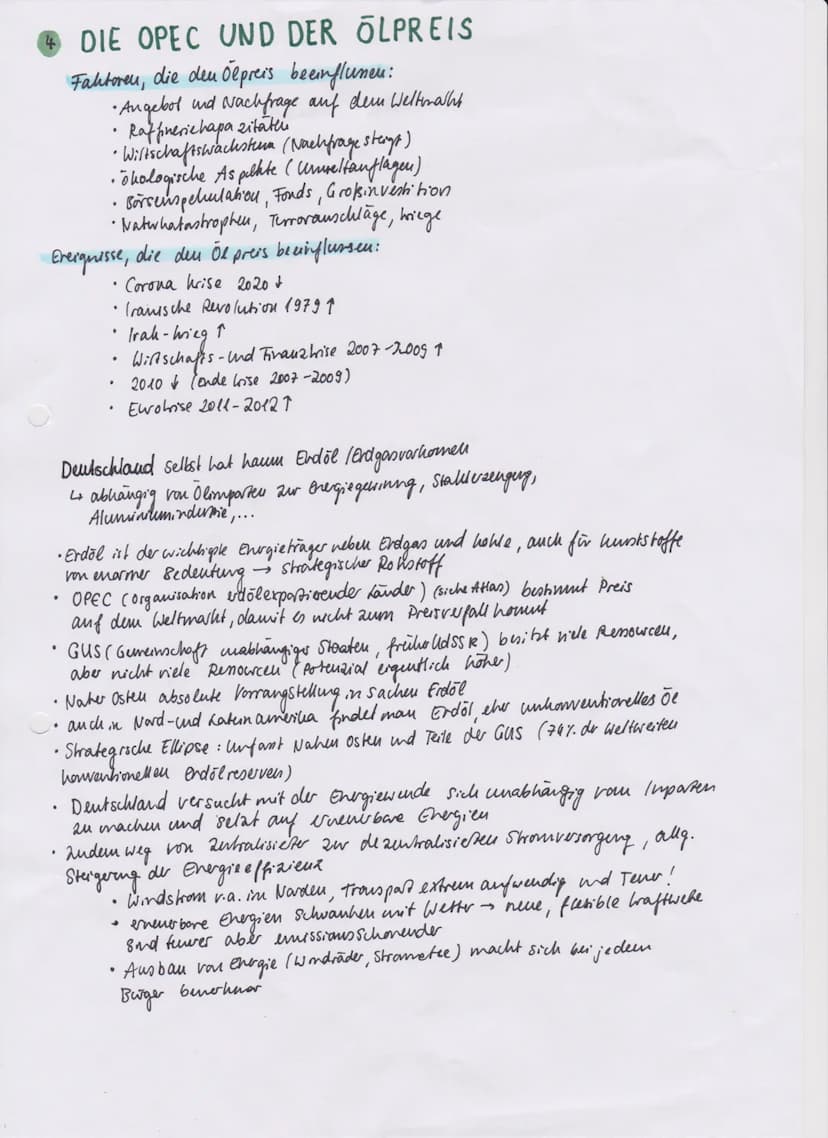 4 DIE OPEC UND DER ÖLPREIS
Faktoren, die den Ölpreis beeinflussen:
• Angebot und Nachfrage auf dem Weltmarkt
• Raffineriekapazitäten
• Wirtschaftswachstum (Nachfrage steigt)
• ökologische Aspekte (Umweltauflagen)
• Börsenspekulation, Fonds, Großinvestition
• Naturkatastrophen, Terroranschläge, Kriege
Ereignisse, die den Ölpreis beeinflussen:
• Corona Krise 2020 ↓
• Iranische Revolution 1979 ↑
• Irak-Krieg ↑
• Wirtschafts- und Finanzkrise 2007-2009 ↑
• 2010 ↓ (Ende Krise 2007-2009)
• Eurokrise 2011-2012 ↑
Deutschland selbst hat kaum Erdöl/Erdgasvorkommen
↳ abhängig von Ölimporten zur Energiegewinnung, Stahlerzeugung,
Aluminiumindustrie,...
• Erdöl ist der wichtigste Energieträger neben Erdgas und Kohle, auch für Kunststoffe
von enormer Bedeutung → strategischer Rohstoff
• OPEC (Organisation erdölexportierender Länder) (siehe Atlas) bestimmt Preis
auf dem Weltmarkt, damit es nicht zum Preisverfall kommt
• GUS (Gemeinschaft unabhängiger Staaten, früher UdSSR) besitzt viele Ressourcen,
aber nicht viele Ressourcen (Potenzial eigentlich höher)
• Naher Osten absolute Vorrangstellung in Sachen Erdöl
• auch in Nord- und Lateinamerika findet man Erdöl, eher unkonventionelles Öl
• Strategische Ellipse: Umfasst Nahen Osten und Teile der GUS (74% der weltweiten
konventionellen Erdölreserven)
• Deutschland versucht mit der Energiewende sich unabhängig von Importen
zu machen und setzt auf erneuerbare Energien
• Zudem weg von zentralisierter zur dezentralisierten Stromversorgung, allg.
Steigerung der Energieeffizienz
• Windstrom v.a. im Norden, Transport extrem aufwendig und Teuer!
• erneuerbare Energien schwanken mit Wetter → neue, flexible Kraftwerke
sind teurer aber emissionsschonender
• Ausbau von Energie (Windräder, Stromnetze) macht sich bei jedem
Bürger bemerkbar